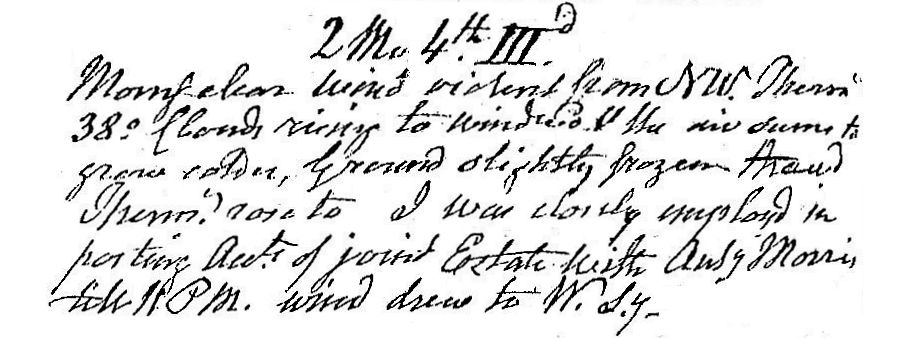 2 Mo 4th IIId
Morng clear wind violent from NW. Therm
38° Clouds rising to windward & the air seems to
grow colder, Ground slightly frozen
Therm. rose to I was closely employd in
posting Accts of joint Estate with Anty Morris
till 11 PM. wind drew to W. Sy.